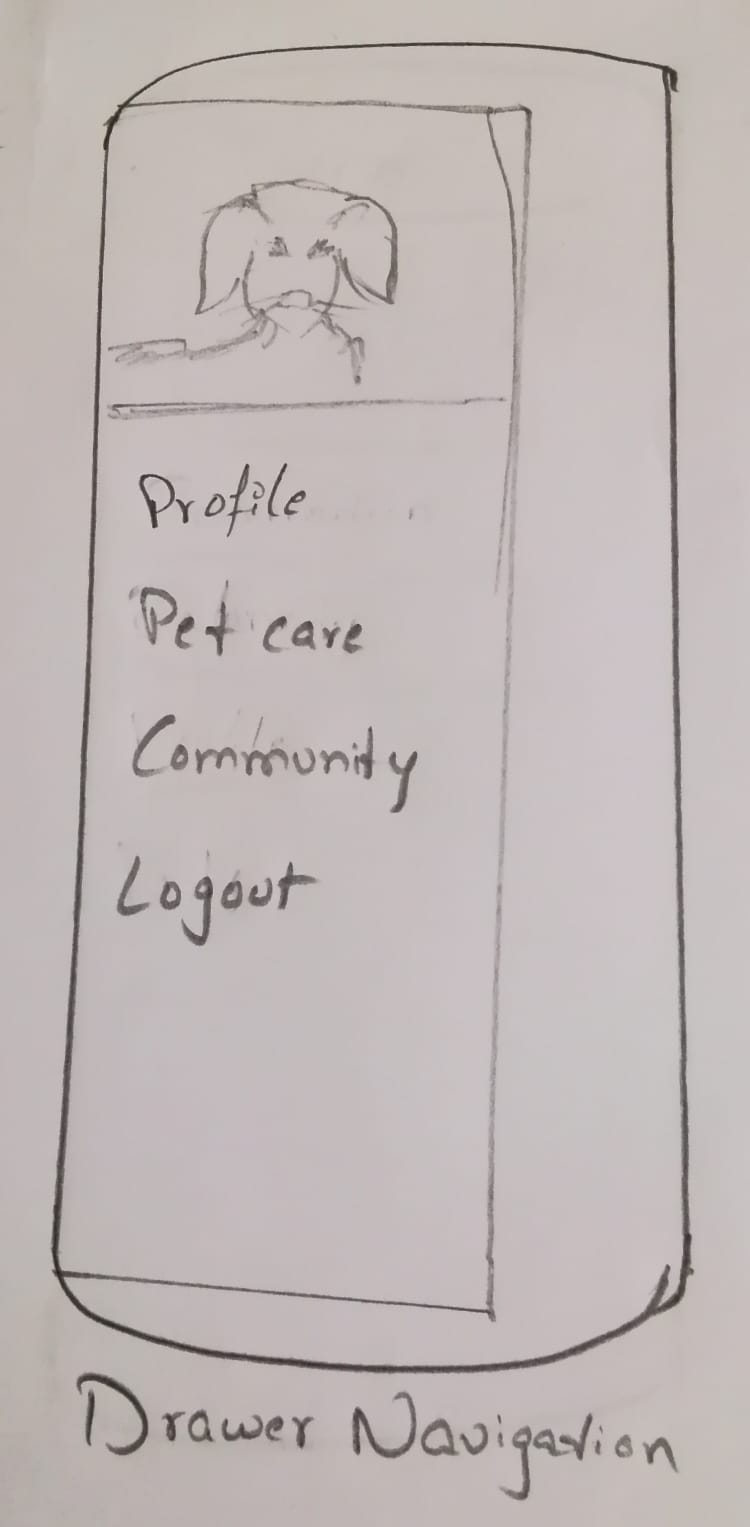 Profile
Pet care
Community
Logout
Drawer Navigation